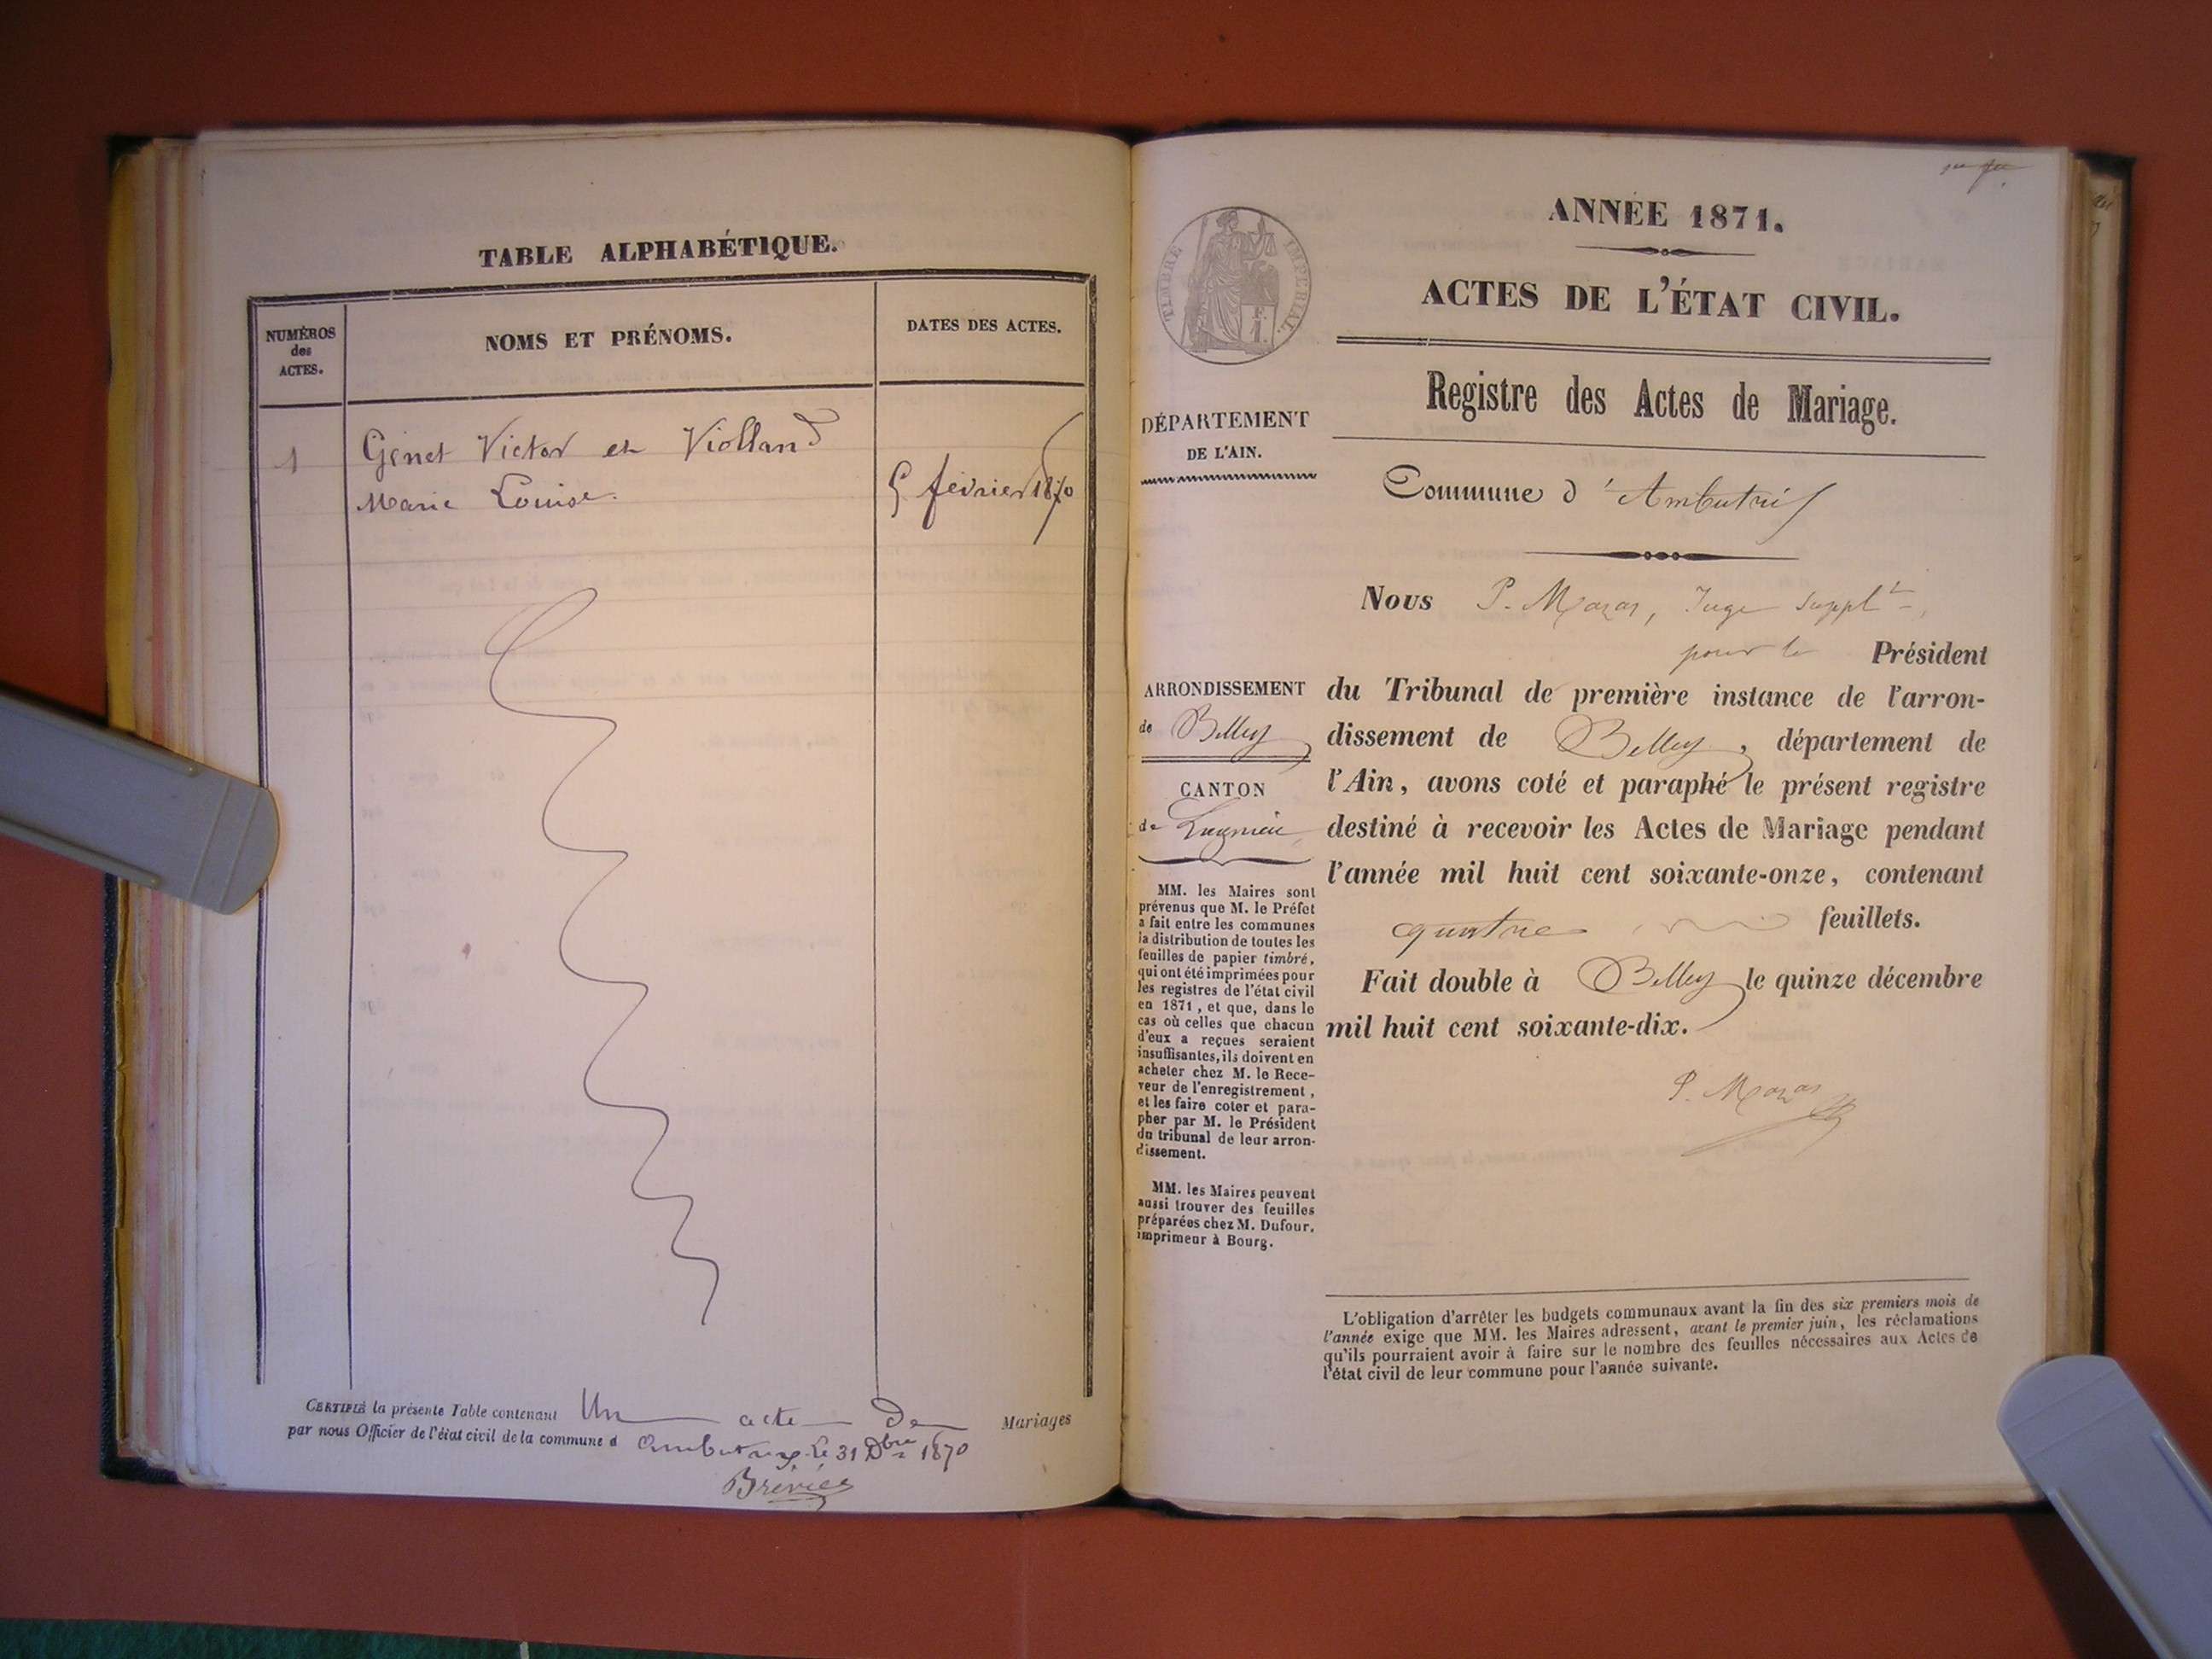 TABLE ALPHABÉTIQUE.
NUMÉROS
des
ACTES.
NOMS ET PRÉNOMS.
DATES DES ACTES.
1
Genet Victor et Violland
Marie Louise.
5 février 1870
CERTIFIÉ la présente Table contenant Un acte De Mariages
par nous Officier de l'état civil de la commune d Ambutrix Le 31 Dbre 1870
ANNÉE 1871.
ACTES DE L'ÉTAT CIVIL.
TIMBRE IMPÉRIAL.
Registre des Actes de Mariage.
DÉPARTEMENT
DE L'AIN.
Commune d'Ambutrix
Nous P. Mazas, Juge Supplt,
pour le Président
ARRONDISSEMENT
de Belley
CANTON
de Lagnieu
du Tribunal de première instance de l'arron-
dissement de Belley, département de
l'Ain, avons coté et paraphé le présent registre
destiné à recevoir les Actes de Mariage pendant
l'année mil huit cent soixante-onze, contenant
quatre feuillets.
Fait double à Belley le quinze décembre
mil huit cent soixante-dix.
P. Mazas
MM. les Maires sont
prévenus que M. le Préfet
a fait entre les communes
la distribution de toutes les
feuilles de papier timbré,
qui ont été imprimées pour
les registres de l'état civil
en 1871, et que, dans le
cas où celles que chacun
d'eux a reçues seraient
insuffisantes, ils doivent en
acheter chez M. le Rece-
veur de l'enregistrement,
et les faire coter et para-
pher par M. le Président
du tribunal de leur arron-
dissement.
MM. les Maires peuvent
aussi trouver des feuilles
préparées chez M. Dufour,
imprimeur à Bourg.
L'obligation d'arrêter les budgets communaux avant la fin des six premiers mois de
l'année exige que MM. les Maires adressent, avant le premier juin, les réclamations
qu'ils pourraient avoir à faire sur le nombre des feuilles nécessaires aux Actes de
l'état civil de leur commune pour l'année suivante.